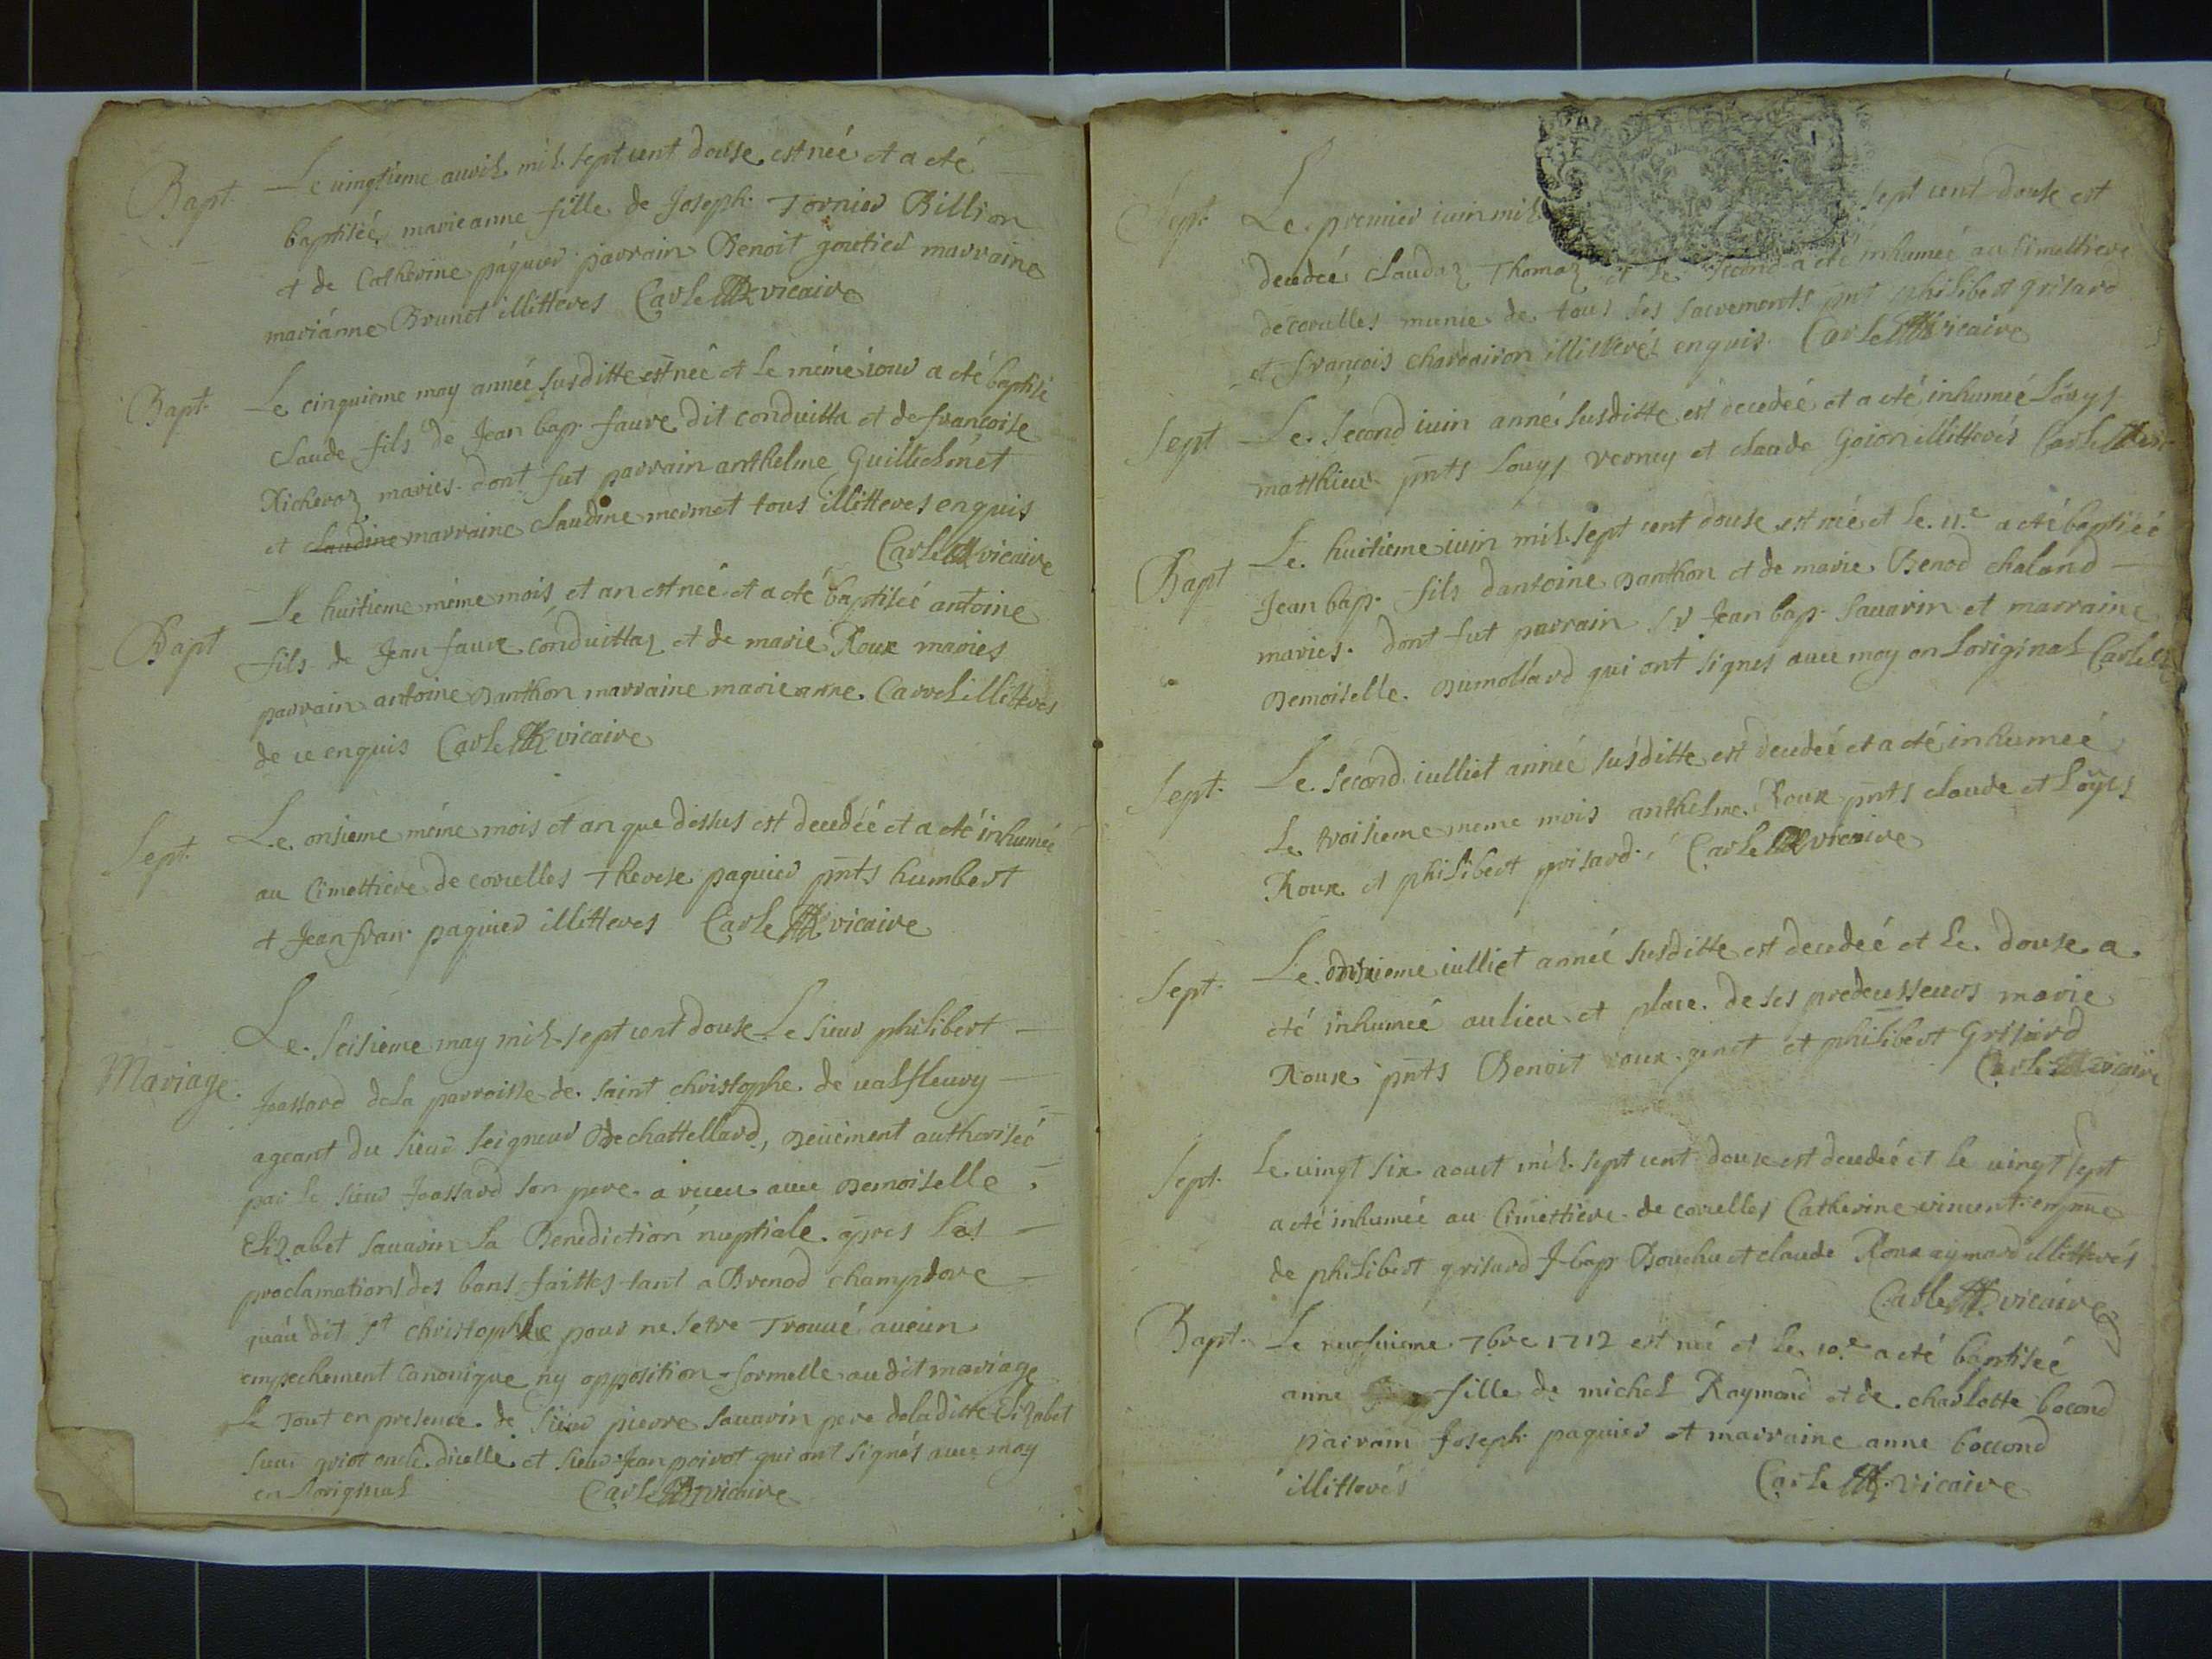 Bapt. Le vingtieme auril mil sept cent douse est née et a eté
baptiseé marieanne fille de Joseph Tornier Billion
et de Catherine paquier parrain Benoit goutier marraine
mariánne Brunet illitteres Carle vicaire
Bapt. Le cinquieme may anneé susditte est neé et le méme iour a eté baptisé
Claude fils de Jean bap. faure dit conduitta et de francoise
Richeroz maries dont fut parrain anthelme Guillichonet
et claudine marraine claudine mermet tous illitteres enquis
Carle vicaire
Bapt Le huitieme méme mois et an est neé et a eté baptiseé antoine
fils de Jean faure conduittaz et de marie Roux maries
parrain antoine Danthon marraine marieanne Carrel illitteres
de ce enquis Carle vicaire
Sept. Le onsieme méme mois et an que dessus est decedée et a eté inhumeé
au Cimettiere de corcelles Therese paquier pnts humbert
et Jean fran. paquier illitteres Carle vicaire
Mariage. Le seisieme may mil sept cent douse Le sieur philibert
Joassard de la parroisse de saint christophe de ualfleury
ageant du sieur seigneur De chattellard, Deüement authoriseé
par le sieur Joassard son pere a receu auec Demoiselle
Elizabet sauarin la Benediction nuptiale apres les
proclamations des bans faittes tant a Brenod champdore
quáu dit st christophle pour ne sétre Trouué aucun
empechement Canonique ny opposition formelle audit mariage
Le Tout en presence de sieur pierre sauarin pere deladitte Elizabet
griot oncle dicelle et sieur Jean poirot qui ont signés auec moy
en loriginal Carle vicaire
Sept. Le premier iuin mil sept cent douse est
decedeé claudaz Thomaz et le second a eté inhumeé au Cimettiere
de corcelles munie de tous ses sacrements pnt philibert grisard
et françois charvairon illitterés enquis. Carle vicaire
Sept Le second iuin anneé susditte est decedeé et a eté inhumeé Loüys
matthieu pnts Louys verney et claude Goion illitterés Carle vic
Bapt Le huitieme iuin mil sept cent douse est né et le 11.e a eté baptiseé
Jean bap. fils dantoine Danthon et de marie Benod chaland
maries. dont fut parrain sr Jean bap. sauarin et marraine
Demoiselle Dumollard qui ont signes auec moy en loriginal Carle
Sept. Le second iulliet anneé susditte est decedeé et a eté inhumeé
Le troisieme meme mois anthelme Roux pnts claude et Loÿes
Roux et philibert grisard. Carle vicaire
Sept. Le onsieme iulliet anneé susditte est decedeé et le douse a
eté inhumeé aulieu et place de ses predecesseurs marie
Roux pnts Benoit roux genet et philibert Grisard
Carle vicaire
Sept. Le vingt six aoust mil sept cent douse est decedeé et le vingt sept
a eté inhumeé au Cimettiere de corcelles Catherine vincent en pnce
de philibert grisard J bap Bouchu et claude Roux aymard illitterés
Carle vicaire
Bapt. Le neufuieme 7bre 1712 est né et le 10.e a eté baptiseé
anne fille de michel Raymond et de charlotte bocond
parrain Joseph paquier et marraine anne boccond
illitterés Carle vicaire